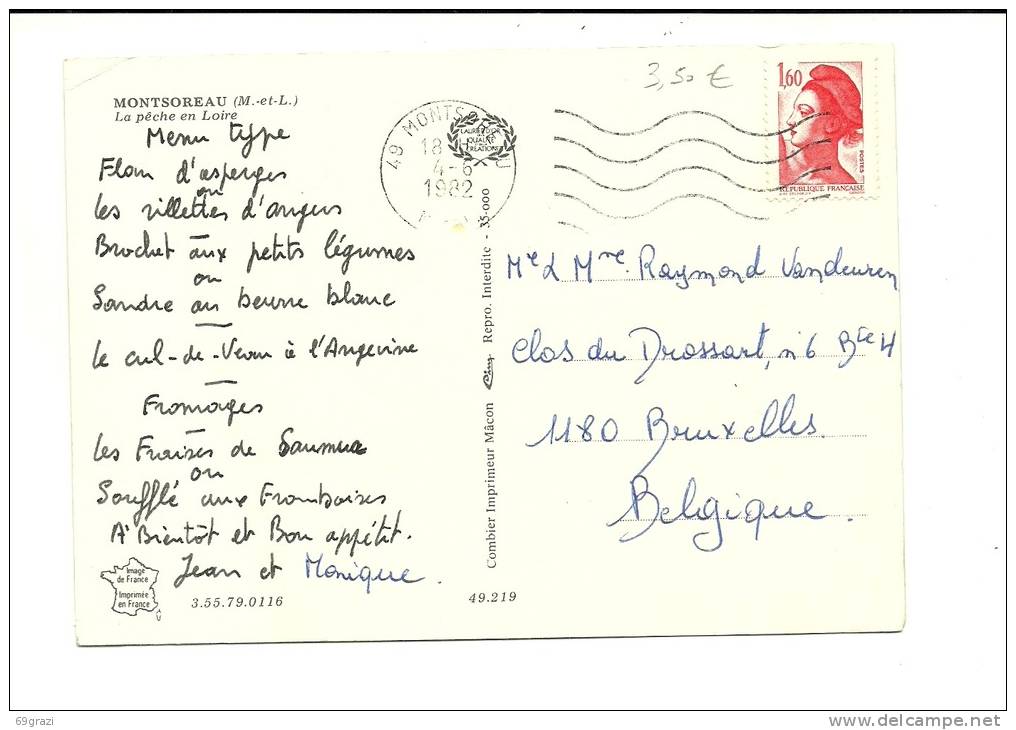 MONTSOREAU (M.-et-L.)
La pêche en Loire
Menu type
Flan d'asperges
ou
les rillettes d'angers
Brochet aux petits légumes
ou
Sandre au beurre blanc
le cul-de-Veau à l'Angevine
Fromages
les Fraises de Saumur
ou
Soufflé aux Framboises
A Bientôt et Bon appétit.
Jean et Monique.
Image
de France
Imprimée
en France
3.55.79.0116
49.219
Combier Imprimeur Mâcon
Repro. Interdite - 35-000
49 MONTSOREAU
18 H
4-6
1982
LAURIER D'OR
DE LA
QUALITÉ
CRÉATIONS
3,50 €
1,60
POSTES
REPUBLIQUE FRANÇAISE
Mr & Mme. Raymond Vandeuren
Clos du Drossart, n 6 Bte H
1180 Bruxelles.
Belgique.
69grazi
delcampe.net